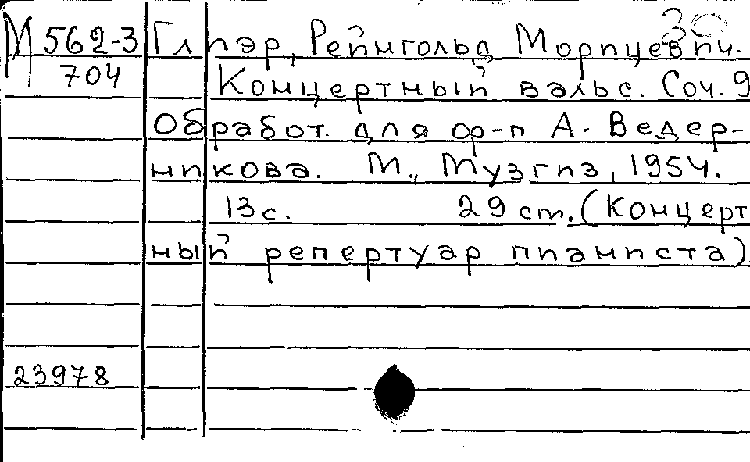 30
М 562-3 Глиэр, Рейнгольд Морицевич.
704 Концертный вальс. Соч. 9
Обработ. для ф-п А. Ведер-
никова. М., Музгиз, 1954.
13 с. 29 cm. (Концерт
ный репертуар пианиста)
23978